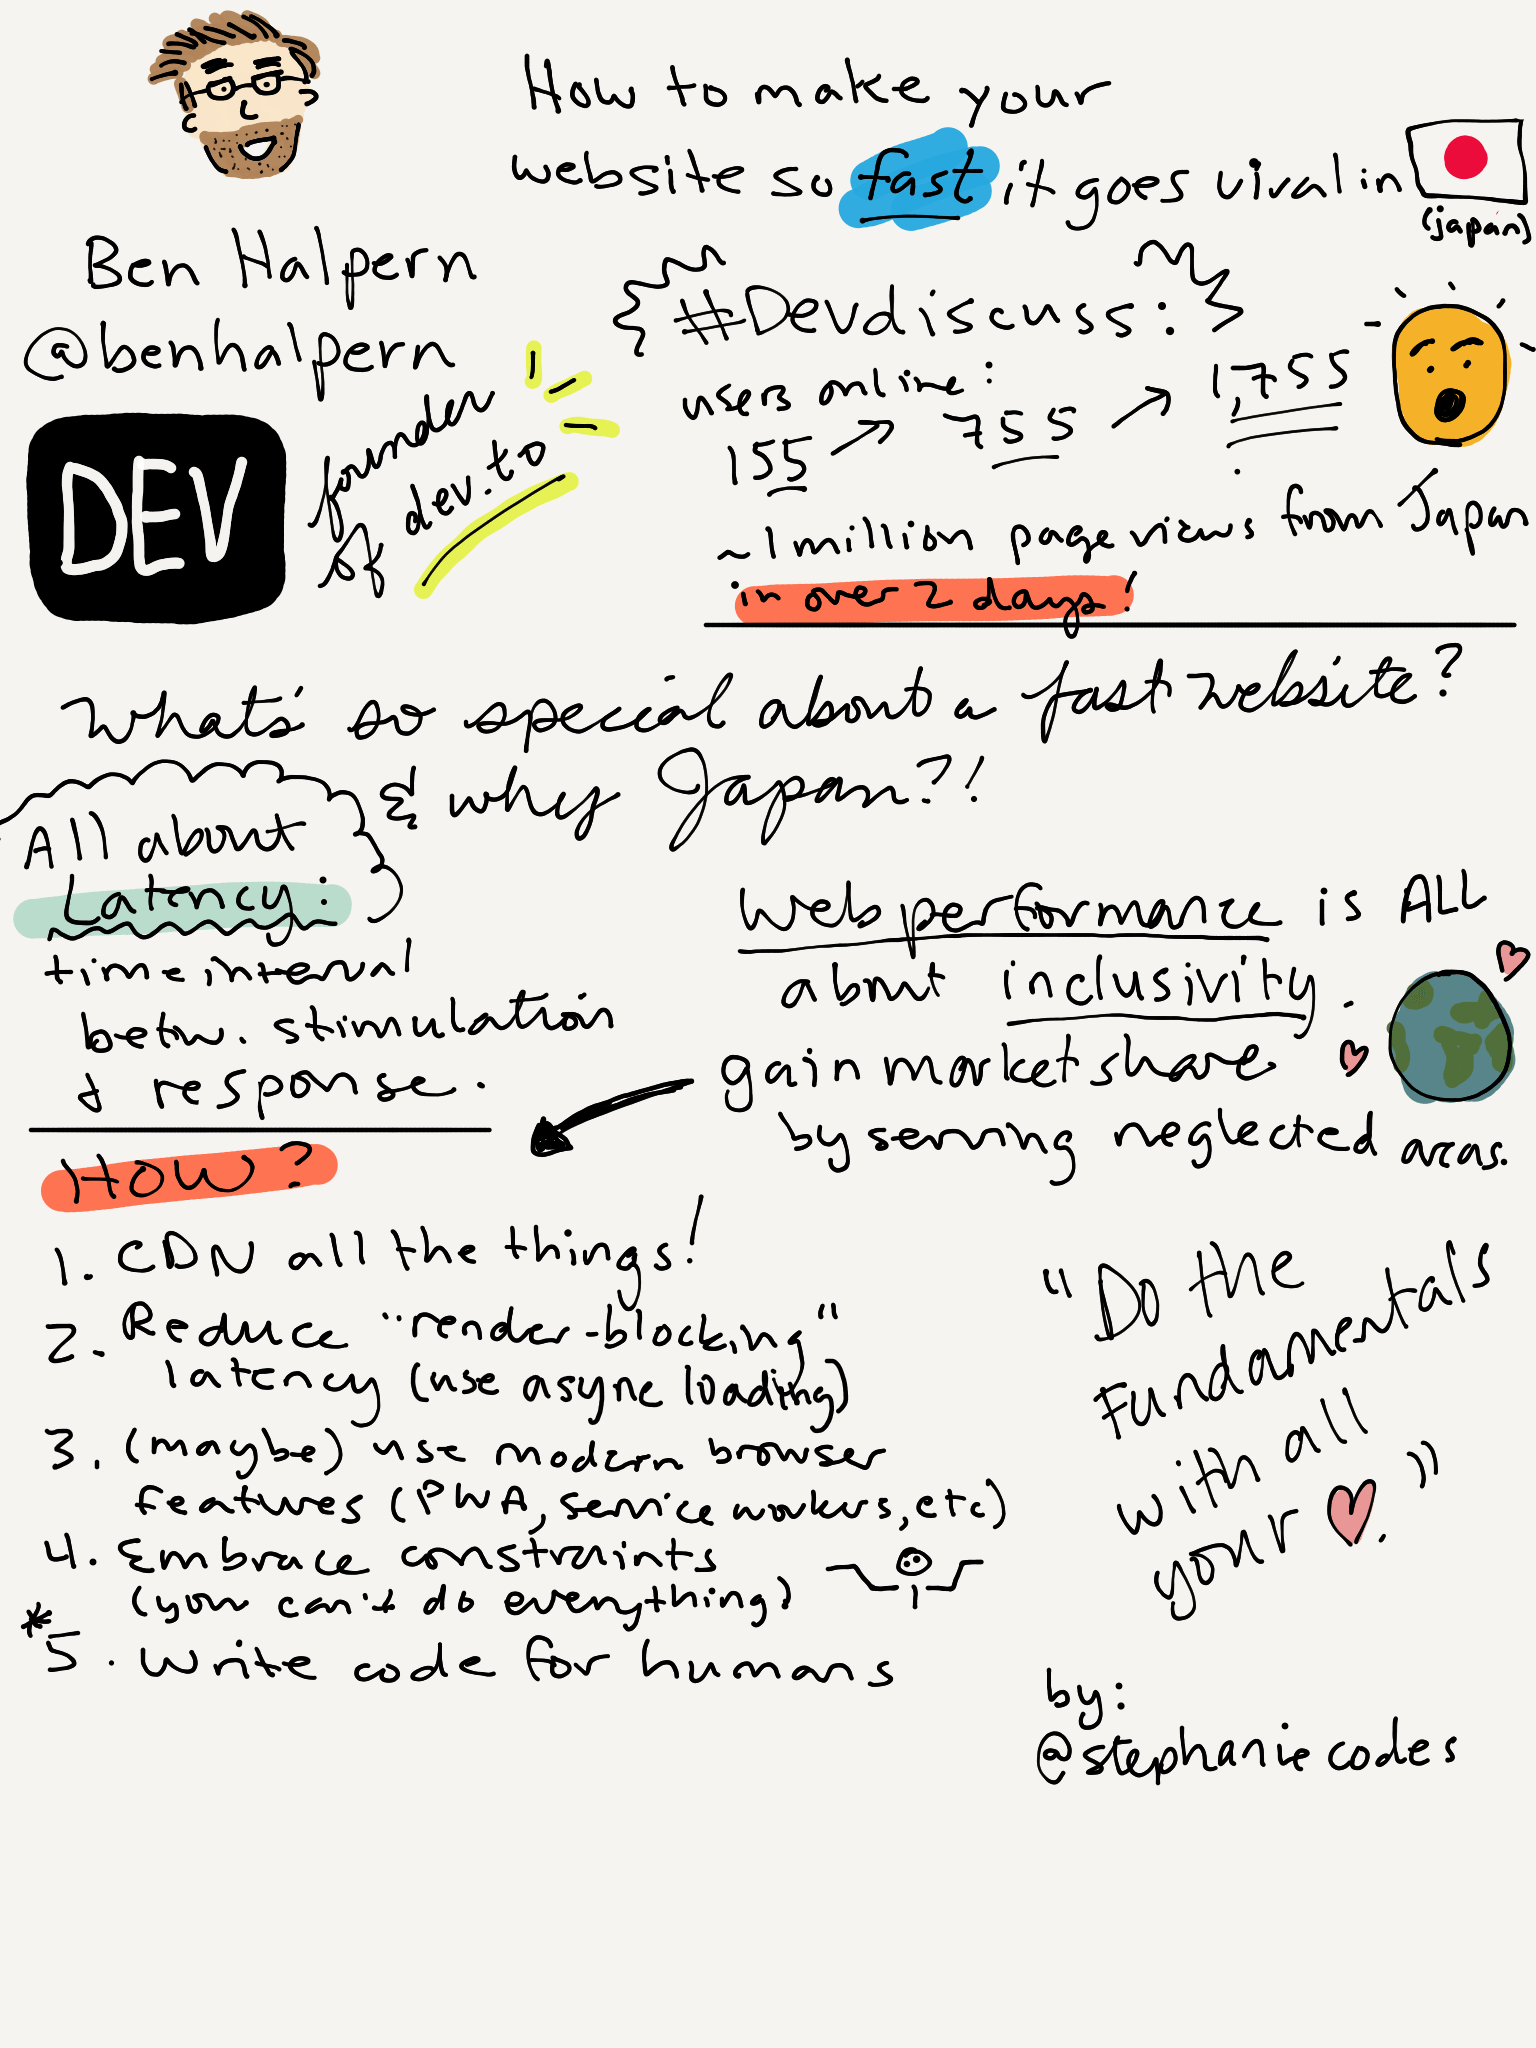 How to make your
website so fast it goes viral in
(japan)
Ben Halpern
@benhalpern
DEV
founder
of dev.to
#Devdiscuss:
users online:
155 → 755 → 1,755
~1 million page views from Japan
in over 2 days!
What's so special about a fast website?
& why Japan?!
All about
Latency:
time interval
betw. stimulation
& response.
Web performance is ALL
about inclusivity.
gain market share
by serving neglected areas.
How?
1. CDN all the things!
2. Reduce "render-blocking"
latency (use async loading)
3. (maybe) use modern browser
features (PWA, service workers, etc)
4. Embrace constraints
(you can't do everything)
*5. Write code for humans
"Do the
Fundamentals
with all
your ♥."
by:
@stephaniecodes